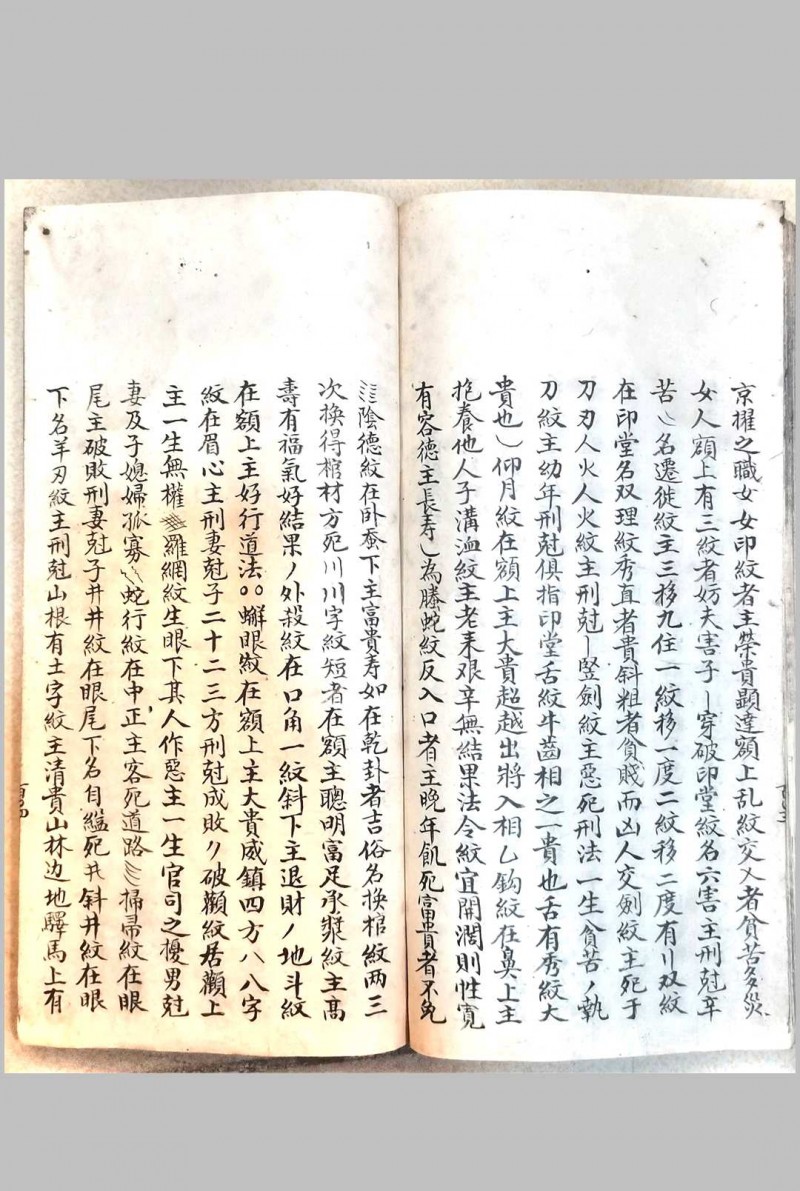 京擢之職女女印紋者主榮貴顕達額上乱紋交乂者貧苦多災
女人額上有三紋者妨夫害子丨穿破印堂紋名六害主刑尅辛
苦乀名遷徙紋主三移九住一紋移一度二紋移二度有刂双紋
在印堂名双理紋秀直者貴斜粗者貧賤而凶人交劍紋主死于
刀刃人火人火紋主刑尅丨竖劍紋主惡死刑法一生貧苦丿執
刀紋主幼年刑尅俱指印堂舌紋牛齒相之一貴也舌有秀紋大
貴也㇁仰月紋在額上主大貴超越出將入相乙鈎紋在鼻上主
抱養他人子溝洫紋主老来艰辛無結果法令紋宜開濶則性寬
有容德主長寿㇁為螣蛇紋反入口者主晚年飢死富貴者不免
陰德紋在卧蚕下主富貴寿如在乾卦者吉俗名换棺紋两三
次换得棺材方死川川字紋短者在額主聰明富足承漿紋主髙
壽有福氣好結果丿外殺紋在口角一紋斜下主退財丿地斗紋
在額上主好行道法〇〇蠏眼紋在額上主大貴威鎮四方八八字
紋在眉心主刑妻尅子二十二三方刑尅成敗〃破顴紋居顴上
主一生無權羅網紋生眼下其人作惡主一生官司之擾男尅
妻及子媳婦孤寡蛇行紋在中正主客死道路彡掃帚紋在眼
尾主破敗刑妻尅子井井紋在眼尾下名自縊死井斜井紋在眼
下名羊刃紋主刑尅山根有土字紋主清貴山林边地驛馬上有